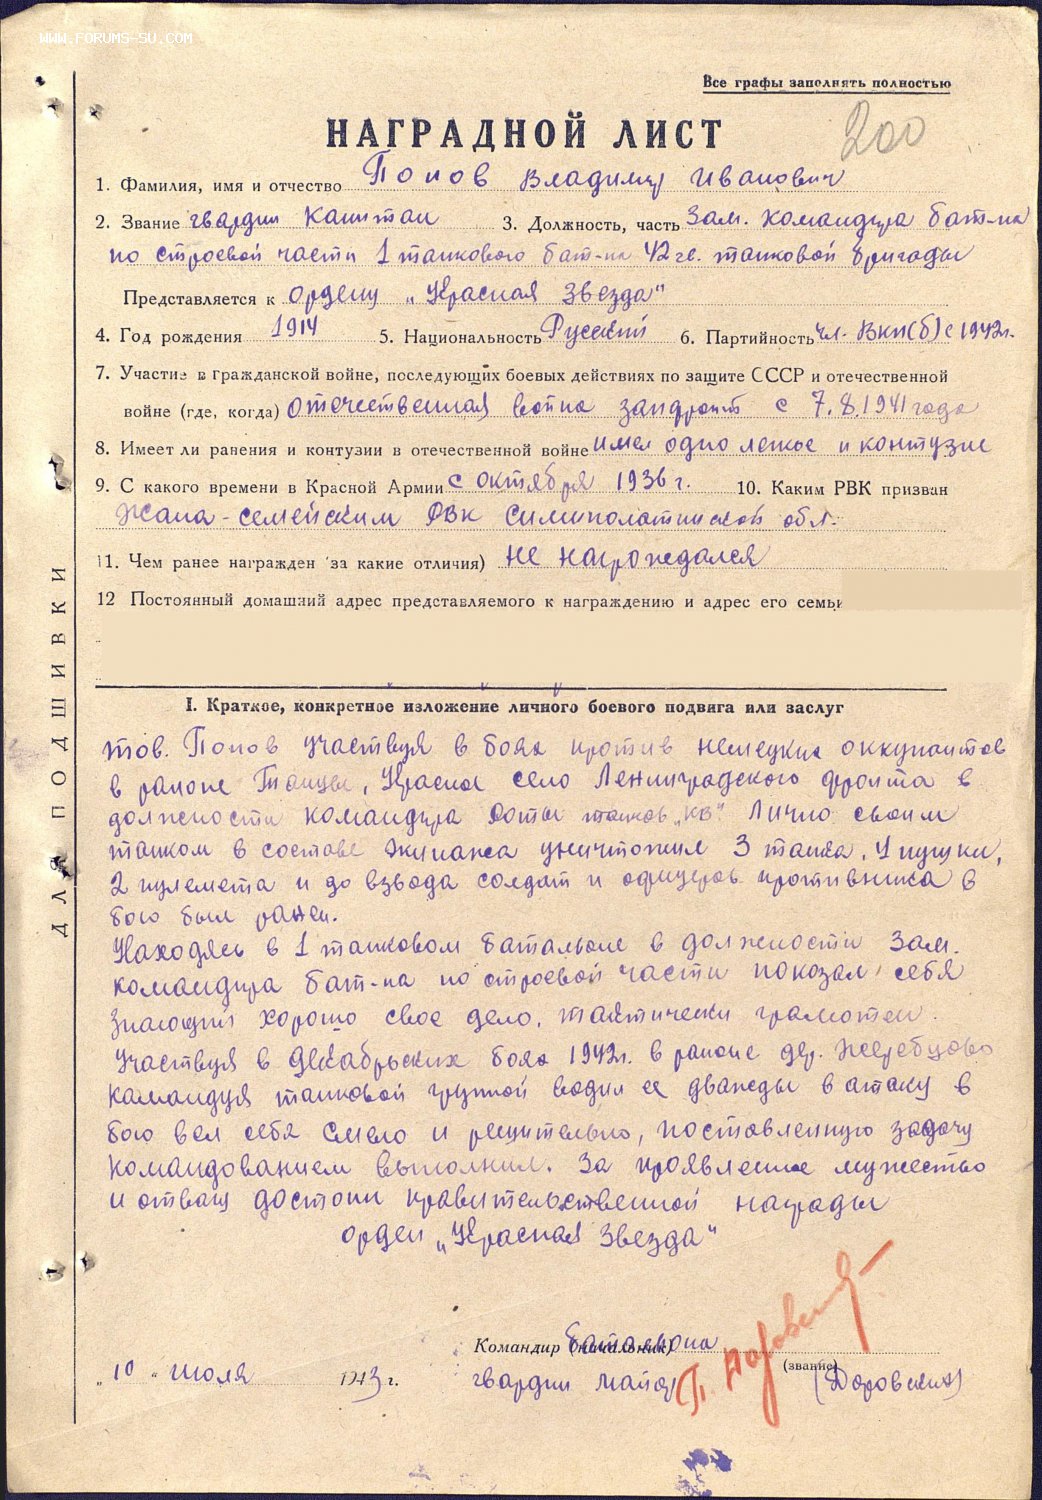 WWW.FORUMS-SU.COM
Все графы заполнять полностью
НАГРАДНОЙ ЛИСТ
200
1. Фамилия, имя и отчество Попов Владимир Иванович
2. Звание гвардии Капитан 3. Должность, часть Зам. командира бат-на
по строевой части 1 танкового бат-на 42 гв. танковой бригады
Представляется к ордену „Красная Звезда"
4. Год рождения 1914 5. Национальность Русский 6. Партийность чл. ВКП(б) с 1942г.
7. Участие в гражданской войне, последующих боевых действиях по защите СССР и отечественной
войне (где, когда) отечественная война запфронт с 7.8.1941 года
8. Имеет ли ранения и контузии в отечественной войне имел одно легкое и контузию
9. С какого времени в Красной Армии с октября 1936 г. 10. Каким РВК призван
Жана-семейским РВК Симиполатинской обл.
11. Чем ранее награжден за какие отличия) не награждался
12 Постоянный домашний адрес представляемого к награждению и адрес его семьи
I. Краткое, конкретное изложение личного боевого подвига или заслуг
тов. Попов участвуя в боях против немецких оккупантов
в районе Тайцы, Красное село Ленинградского фронта в
должности командира роты танков „КВ" Лично своим
танком в составе экипажа уничтожил 3 танка, 4 пушки,
2 пулемета и до взвода солдат и офицеров противника в
бою был ранен.
Находясь в 1 танковом батальоне в должности зам.
командира бат-на по строевой части показал себя
знающий хорошо свое дело, тактически грамотен.
Участвуя в декабрьских боях 1942г. в районе дер. Жеребцово
командуя танковой группой водил ее дважды в атаку в
бою вел себя смело и решительно, поставленную задачу
командованием выполнил. За проявленное мужество
и отвагу достоин правительственной награды
орден „Красная Звезда"
Командир (начальник) батальона
гвардии майор (звание) (Доровский)
„10" июля 1943 г.
ДЛЯ ПОДШИВКИ